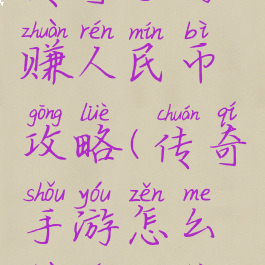 zhuàn rén mín bì
赚人民币
gōng lüè chuán qí
攻略(传奇
shǒu yóu zěn me
手游怎么